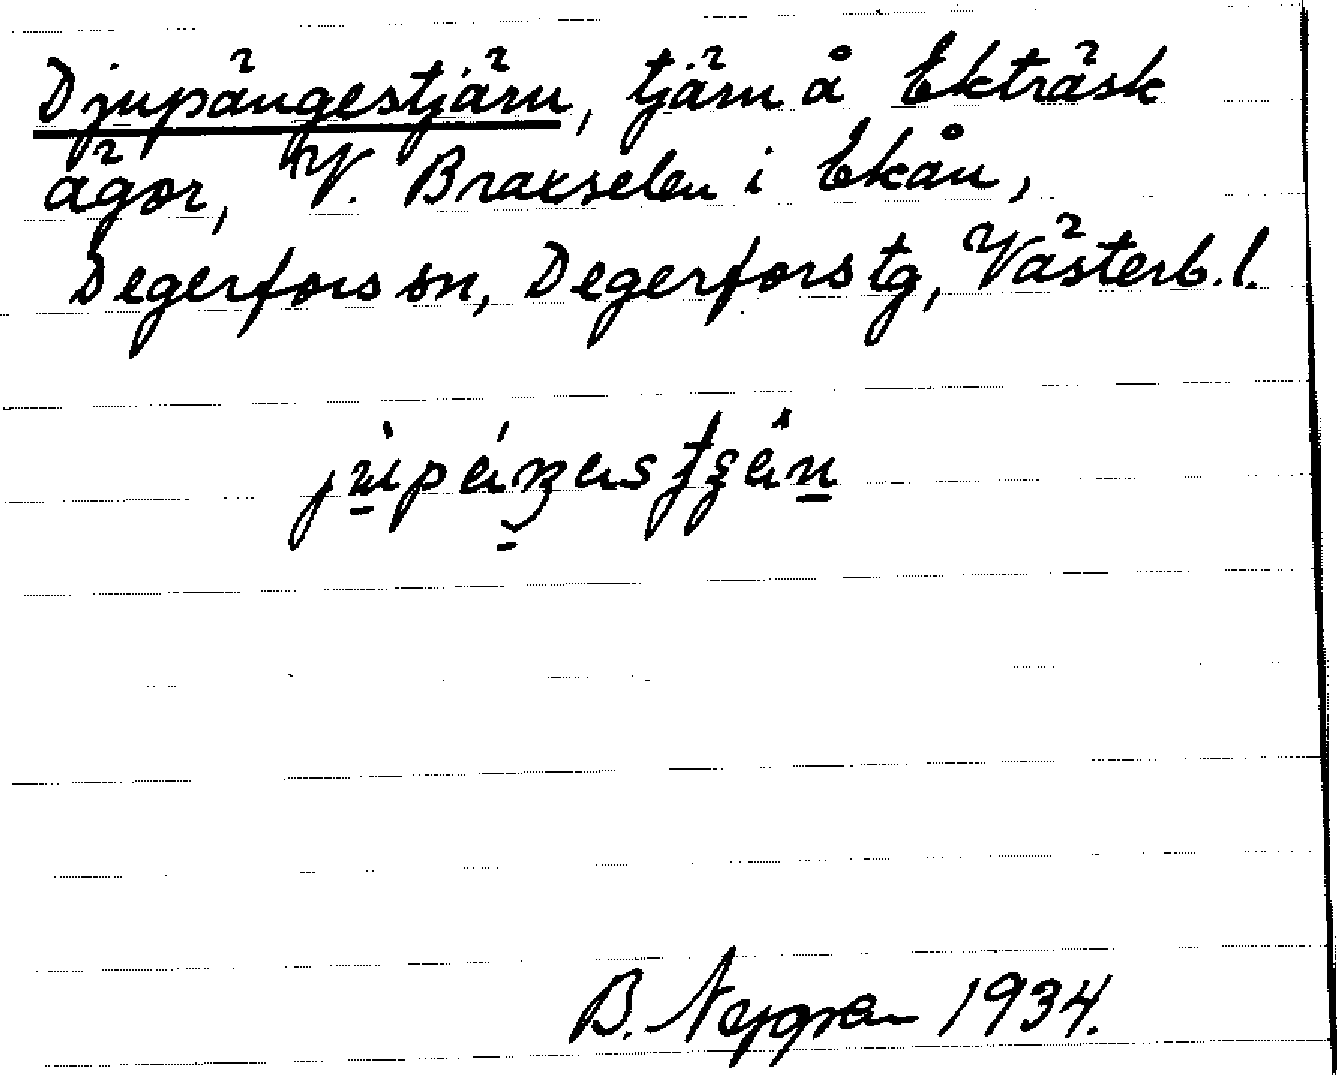 Djupängestjärn, tjärn å Ekträsk
ägor, V. Braxselen i Ekån,
Degerfors sn, Degerfors tg, Västerb. l.
B. Nygren 1934.